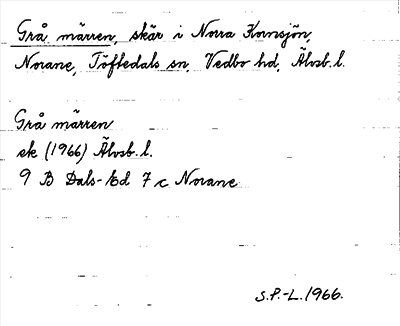 Grå märren, skär i Norra Kornsjön,
Norane, Töftedals sn, Vedbo hd, Älvsb. l.
Grå märren
ek (1966) Älvsb. l.
9 B Dals-Ed 7 c Norane
S.P.-L. 1966.